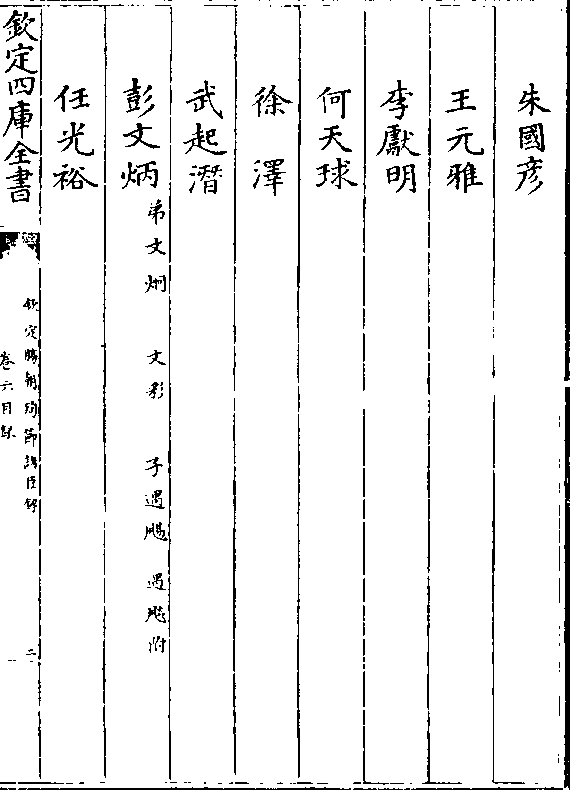 朱國彥
王元雅
李獻明
何天球
徐澤
武起潛
彭文炳 弟文炯 文彩 子遇颺 遇颷附
任光裕
欽定四庫全書
欽定勝朝殉節諸臣錄
卷六目錄
二